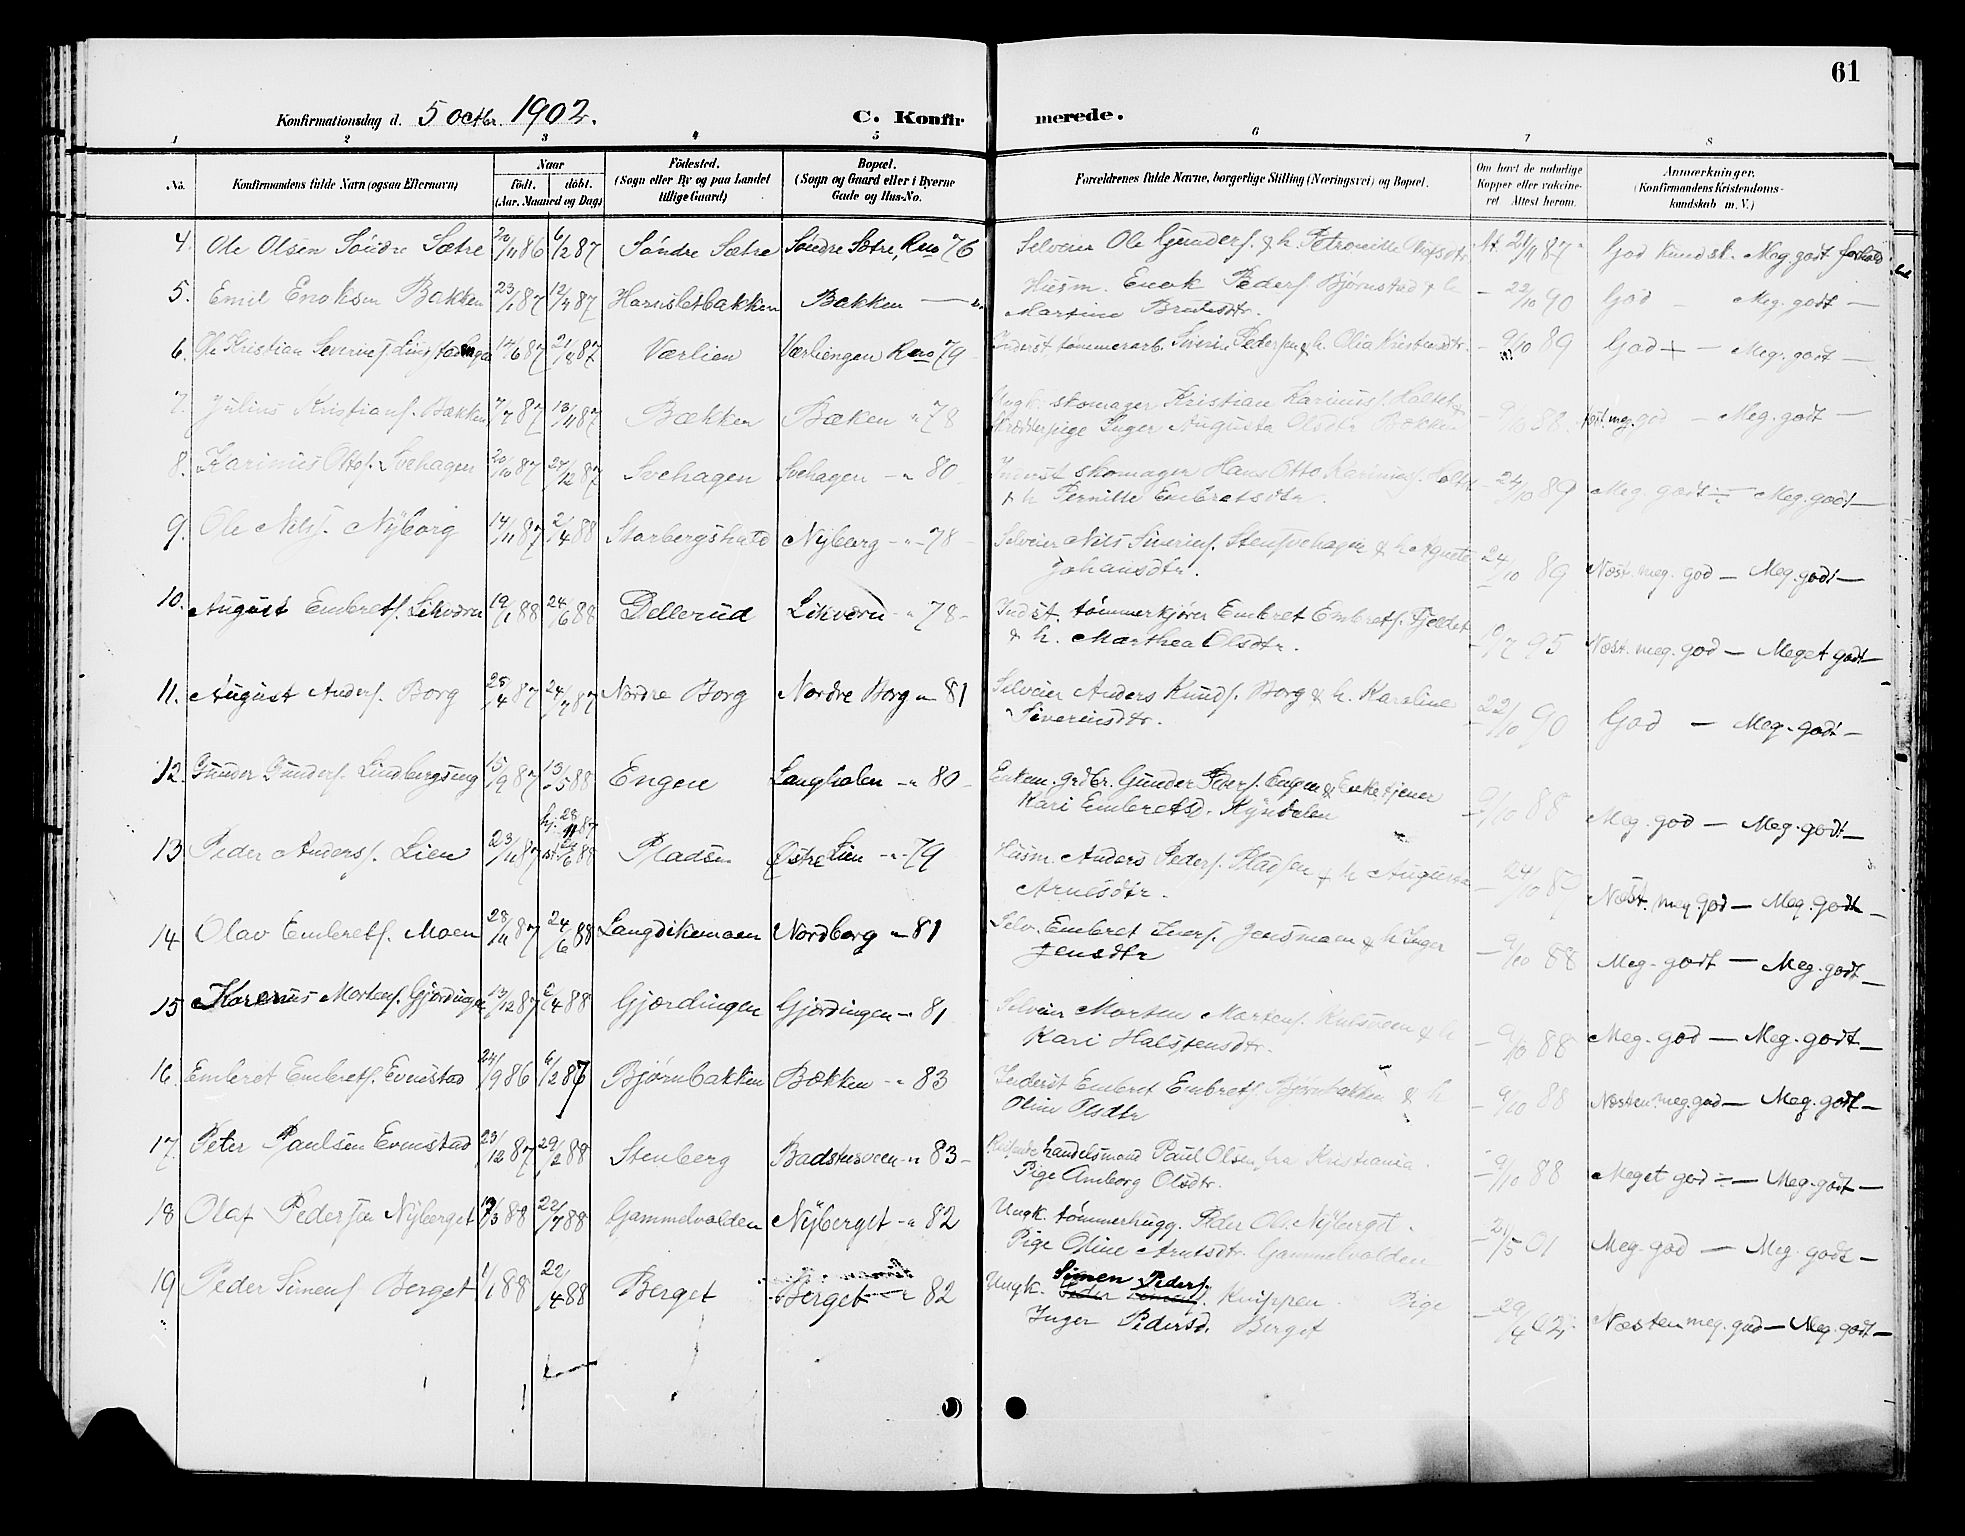 61
Konfirmationsdag d. 5 Octbr. 1902.
C. Konfirmerede.
1 2 3 4 5 6 7 8
No.
Konfirmandens fulde Navn (ogsaa Efternavn)
Naar
født. døbt.
(Aar, Maaned og Dag)
Födested.
(Sogn eller By og paa Landet
tillige Gaard)
Bopæl.
(Sogn og Gaard eller i Byerne
Gade og Hus-No.
Forældrenes fulde Navne, borgerlige Stilling (Næringsvei) og Bopæl.
Om havt de naturlige
Kopper eller vakcine-
ret Attest herom.
Anmærkninger.
(Konfirmandens Kristendoms-
kundskab m. V.)
4. Ole Olsen Søndre Sætre 20/11 86 6/2 87 Søndre Sætre Søndre Sætre, Rno 76 Selveier Ole Gunders. & h. Petronille Olofsdtr At. 21/11 87 God kundsk. Meg. godt forhold
5. Emil Enoksen Bakken 23/1 87 12/4 87 Harnsletbakken Bakken Husm. Enok Peders. Bjørnstad & h
Martine Berntsdtr. – 22/10 90 God – Meg. godt –
6. Ole Kristian Severins. 14/6 87 21/8 87 Værlien Værliengen Rno 79 Inderst tømmerarb. Siverin Pedersen & h. Olia Kristensdtr. – 9/10 89 God + – Meg. godt –
7. Julius Kristians. Bækken 7/7 87 13/11 87 Bækken Bæken " 78 Ungk. skomager Kristian Karinius. Holtet &
Inger Augusta Olsdtr Bækken – 9/10 88. meg. god – Meg. godt –
8. Karinius Ottos. Svehagen 20/10 87 27/12 87 Svehagen Svehagen – " 80 Inderst skomager Hans Otto Karinius. Holtet
& h Pernille Embretsdtr. – 24/10 89 Meg. godt ÷ – Meg. godt –
9. Ole Nils. Nyborg 14/11 87 2/4 88 Storbergshald Nyborg – " – 78 – Selveier Nils Siverins. Stensvehagen & h. Agnete
Johansdtr. 24/10 89 Næst. meg. god – Meg. godt –
10. August Embrets. Likværn 19/1 88 24/6 88 Dellerud Likværn – " 78 – Indst. tømmerkjører Embret Embrets. Fjeldet
& h. Marthea Olsdtr. – 19/7 95 Næst. meg. god – Meget godt –
11. August Anders. Borg 25/4 87 24/7 87 Nordre Borg Nordre Borg " 81 Selveier Anders Knuds. Borg & h. Karoline
Siverinsdtr. – 22/10 90 God – Meg. godt –
12. Gunder Gunders. Lindbergseng 15/9 87 13/5 88 Engen Langholen – " 80 – Enkem. grdbr. Gunder Ivers. Engen & Enke tjener
Kari Embretsd. Kyndelen – 9/10 88 Meg. god – Meg. godt –
13 Peder Anders. Lien 23/11 87 hj. 28/11 87 st. 24/6 88 Pladsen Østre Lien – " 79 Husm. Anders Peders. Pladsen & h Augusta
Arnesdtr. – 24/10 89 Næst. meg. god – Meg. godt –
14 Olav Embrets. Moen 28/11 87 24/6 88 Langdikemoen Nordborg " 81 Selv. Embret Ivers. Jensmoen & h Inger
Jensdtr – 9/10 88 Meg. godt – Meg. godt –
15 Karenius Mortens. Gjørdingen 13/12 87 2/4 88 Gjørdingen Gjørdingen – " 81 Selveier Morten Mortens. Kulsveen & h
Kari Halstensdtr. – 9/10 88 Meg. god – Meg. godt –
16 Embret Embrets. Evenstad 24/9 86 6/2 87 Bjørnbakken Bækken – " 83 Inderst Embret Embrets. Bjørnbakken & h
Oline Olsdtr – 9/10 88 Næsten meg. god – Meg. godt –
17. Peter Paulsen Evenstad 23/12 87 29/2 88 Stenberg Badstusveen – " 83 – Reisende handelsmand Paul Olsen fra Kristiania.
Pige Amborg Olsdtr. – 9/10 88 Meget god ÷ – Meg. godt –
18 Olaf Pedersen Nyberget 17/3 88 22/7 88 Gammelvolden Nyberget – " 82 Ungk. tømmerhugg. Peder Ols. Nyberget.
Pige Oline Arntsdtr. Gammelvolden – 21/5 01 Meg. god – Meg. godt –
19 Peder Simens. Berget 1/1 88 22/4 88 Berget Berget – " 82 Ungk. Simen Peders. Knippen. Pige
Inger Pedersd. Berget – 29/4 02. Næsten meg. god – Meg. godt –